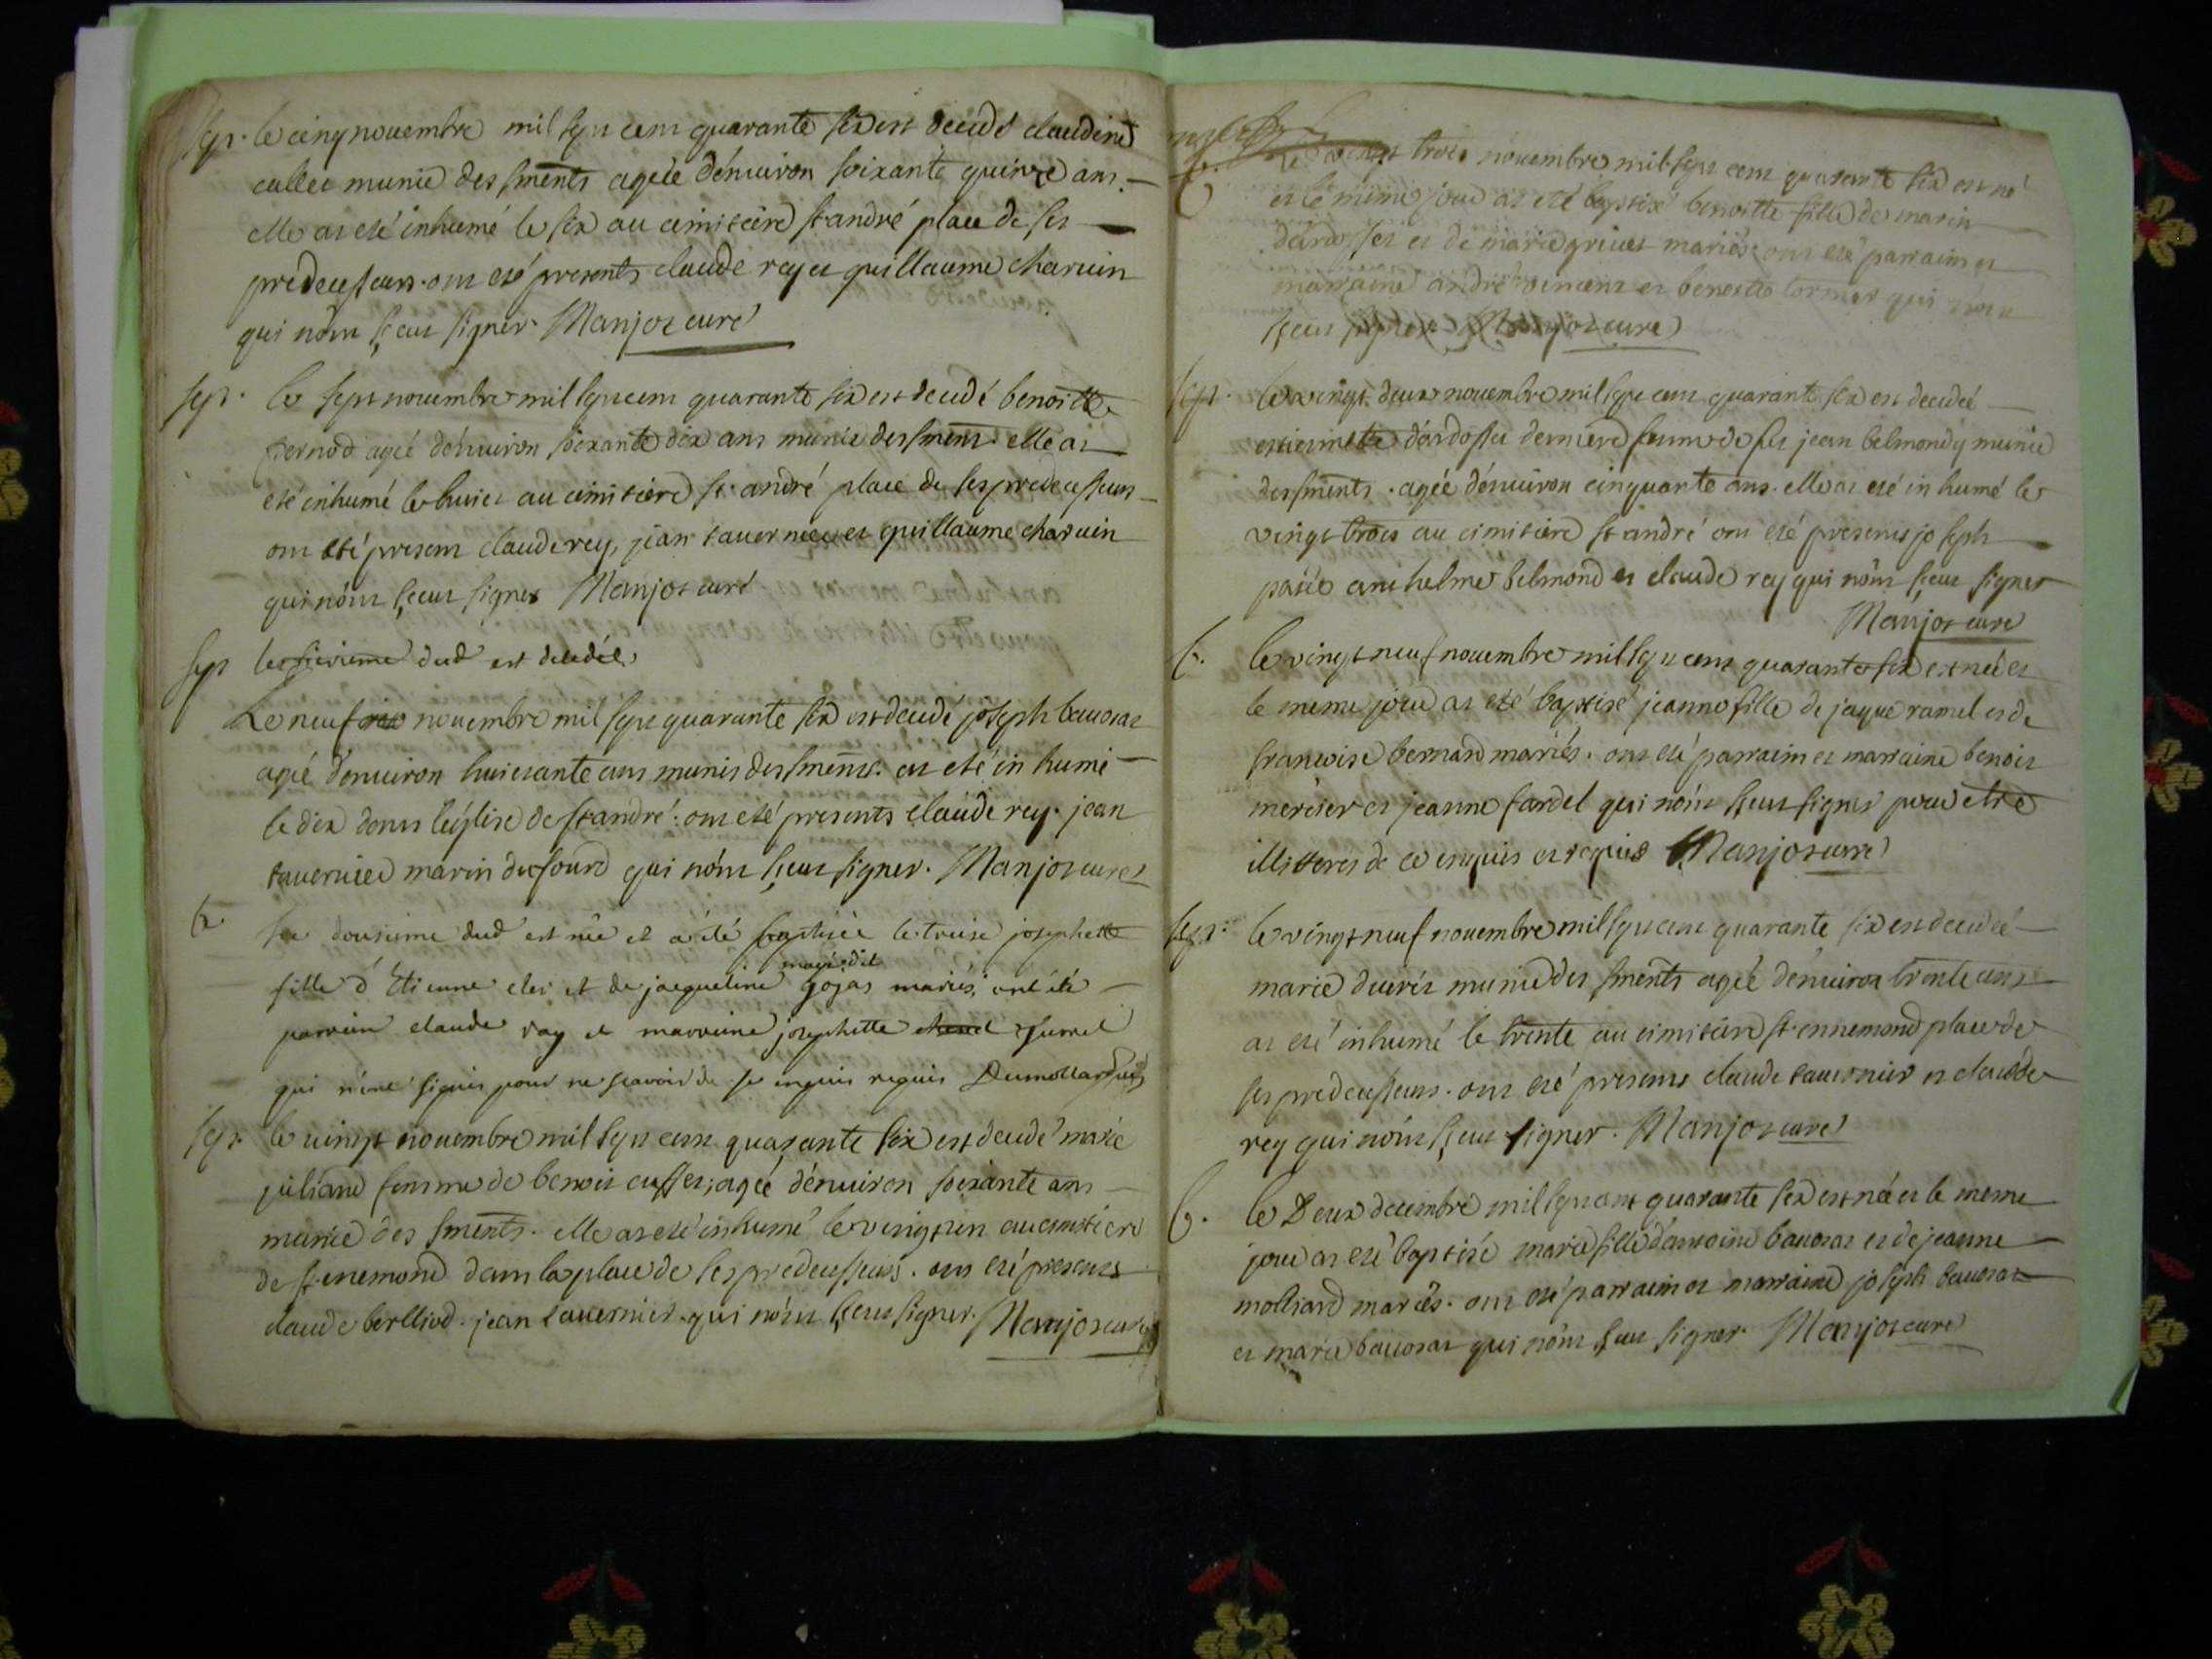 sep. le cinq novembre mil sept cent quarante six est decedé claudine
cullet munie des sments agée dénuiron soixante quinze ans. —
elle at eté inhumé le six au cimitiere st andré place de ses —
predecesseurs. ont eté presents claude rey et guillaume charuin
qui nónt sçeut signer. Manjot curé
sep. le sept nouembre mil sept cent quarante six est decedé benoitte
pernod agée dénuiron soixante dix ans munie des sments. elle at
eté inhumé le huict au cimitiere st. andré place de ses predecesseurs —
ont eté present claude rey, jean tavernier et guillaume charuin
qui nónt sçeut signer Manjot curé
sep dud est decedée
Le neuf nouembre mil sept quarante six est decedé joseph
agé dénuiron huictante ans munis des sments. at eté inhumé —
le dix dans léglise de st andré. ont eté presents claude rey. jean
tauernier marin dufourd qui nónt sçeut signer. Manjot curé
b. Le douzieme dud est née et a été baptisée le treise josephette
fille d'Etienne et de jacqueline gojas mariés, ont été —
parrein claude ray et marreine josephette
qui n'ont signés pour ne sçavoir de ce enquis requis
sep. le vingt nouembre mil sept cent quarante six est decedé marie
juliand femme de benoit agée dénuiron soixante ans —
munie des sments. elle at eté inhumé le vingt un au cimitiere
de st. enemond dans la place de ses predecesseurs. ont eté presents
claude berlliod. jean tauernier. qui nónt sçeut signer. Manjot curé
b. le vingt trois nouembre mil sept cent quarante six est né
et le mème jour at eté baptisé benoitte fille de marin
dardosset et de marie griuet mariés. ont eté parrain et
marraine andré vincent et benoitte qui nónt
sçeut signer. Manjot curé
sept. le vingt deux nouembre mil sept cent quarante six est decedée —
estiennette dárdosset derniere femme de feu jean belmond y munie
des sments. agée dénuiron cinquante ans. elle at eté inhumé le
vingt trois au cimitiere st andré ont eté presents joseph —
anthelme belmond et claude rey qui nónt sçeut signer
Manjot curé
b. le vingt neuf nouembre mil sept cent quarante six est née et
le mème jour at eté baptisé jeanne fille de jaque ramel et de
francoise bernard mariés. ont eté parrain et marraine benoit
mercier et jeanne fardel qui nónt sçeut signer pour etre
illitterés de ce enquis et requis Manjot curé
sept. le vingt neuf nouembre mil sept cent quarante six est decedée —
marie munie des sments agée dénuiron trente ans
at eté inhumé le trente au cimitiere st. ennemond place de
ses predecesseurs. ont eté presents claude tauernier et claude
rey qui nónt sçeut signer. Manjot curé
b. le Deux decembre mil sept cent quarante six est née et le mème
jour at eté baptisé marie fille dántoine bauosat et de jeanne —
molliard mariés. ont eté parrain et marraine joseph bauosat
et marie bauosat qui nónt sçeut signer. Manjot curé